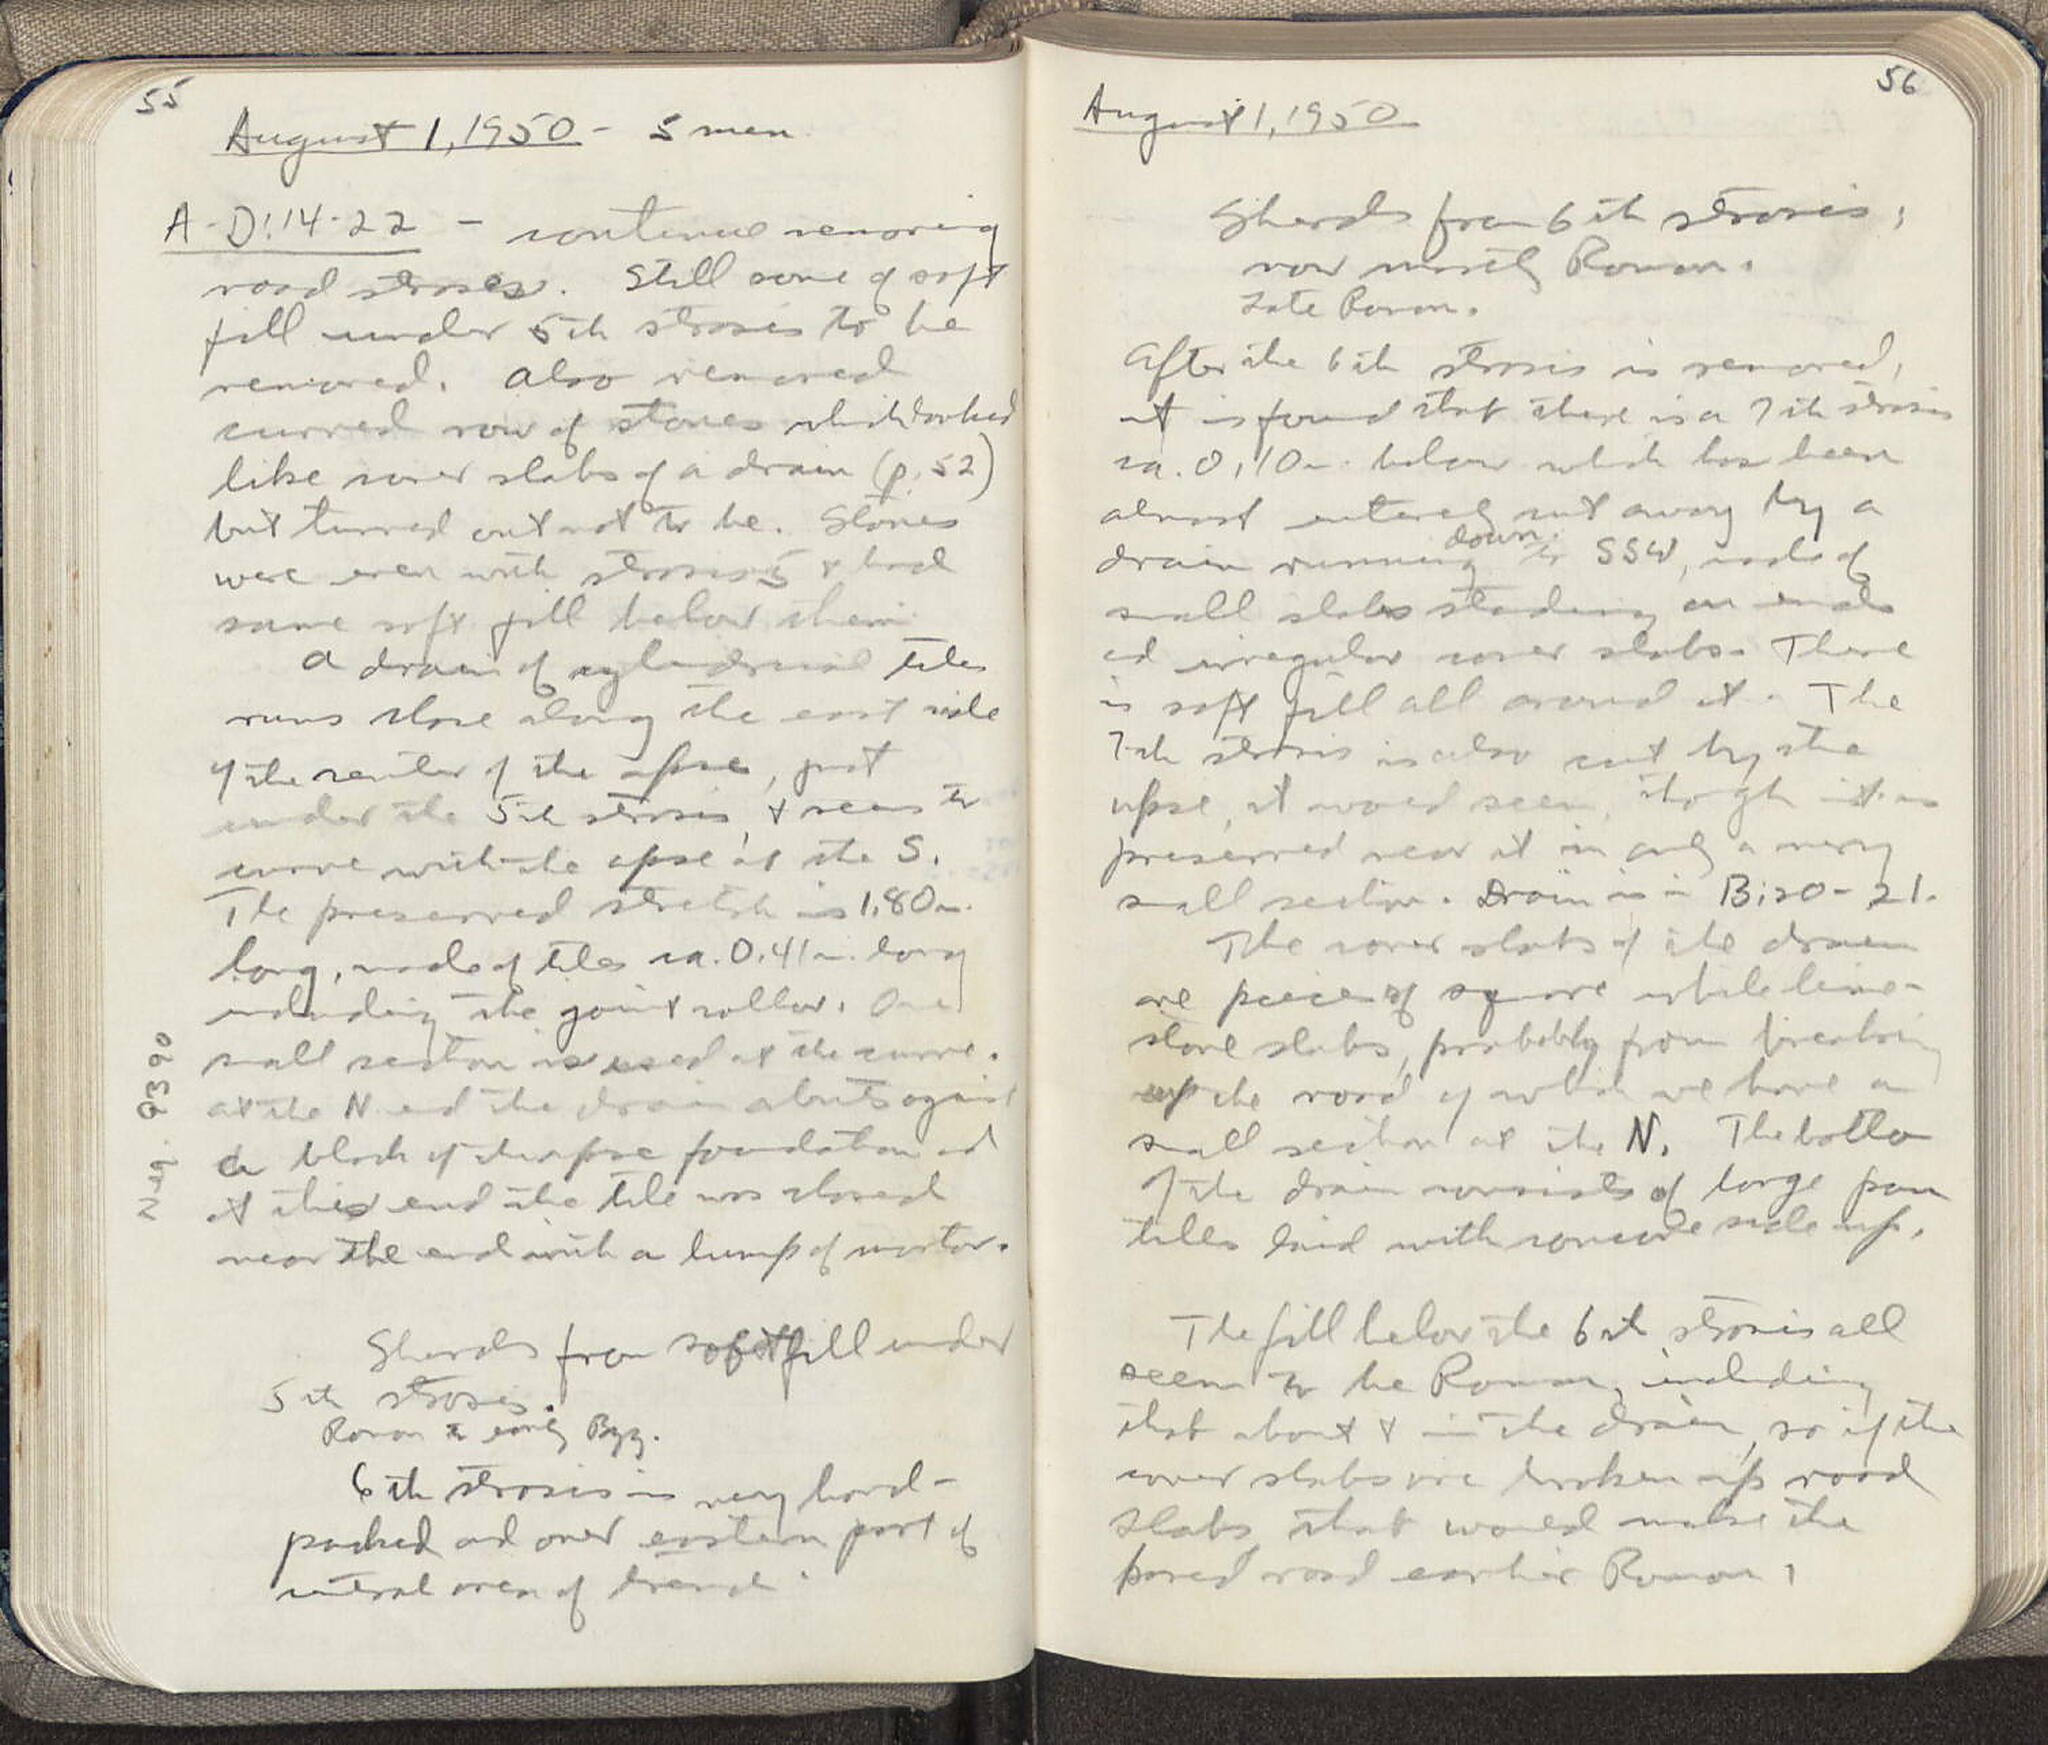 55
August 1, 1950 - 5 men
A-D:14-22 - continue removing
road stroses. Still some of soft
fill under 5th strosis to be
removed. Also removed
curved row of stones which looked
like cover slabs of a drain (p. 52)
but turned out not to be. Stones
were even with strosis 5 & had
same soft fill below them.
A drain of cylindrical tiles
runs close along the east side
of the center of the apse, just
under the 5th strosis, & seems to
curve with the apse at the S.
The preserved stretch is 1.80m.
long, made of tiles ca. 0.41m. long
including the joint collar. One
small section is used at the curve.
At the N end the drain abuts against
a block of the apse foundation and
at this end the tile was closed
near the end with a lump of mortar.
Neg. 9390
Sherds from soft fill under
5th strosis.
Roman to early Byz.
6th strosis is very hard-
packed and over eastern part of
central area of trench.
56
August 1, 1950
Sherds from 6th strosis;
now mostly Roman.
Late Roman.
After the 6th strosis is removed,
it is found that there is a 7th strosis
ca. 0.10m. below which has been
almost entirely cut away by a
drain running down to SSW, made of
small slabs standing on ends
and irregular cover slabs. There
is soft fill all around it. The
7th strosis is also cut by the
apse, it would seem, though it is
preserved near it in only a very
small section. Drain is in B:20-21.
The cover slabs of the drain
are pieces of square white lime-
stone slabs, probably from breaking
up the road of which we have a
small section at the N. The bottom
of the drain consists of large pan
tiles laid with concave side up.
The fill below the 6th strosis all
seem to be Roman, including
that about & in the drain, so if the
cover slabs are broken up road
slabs that would make the
paved road earlier Roman.